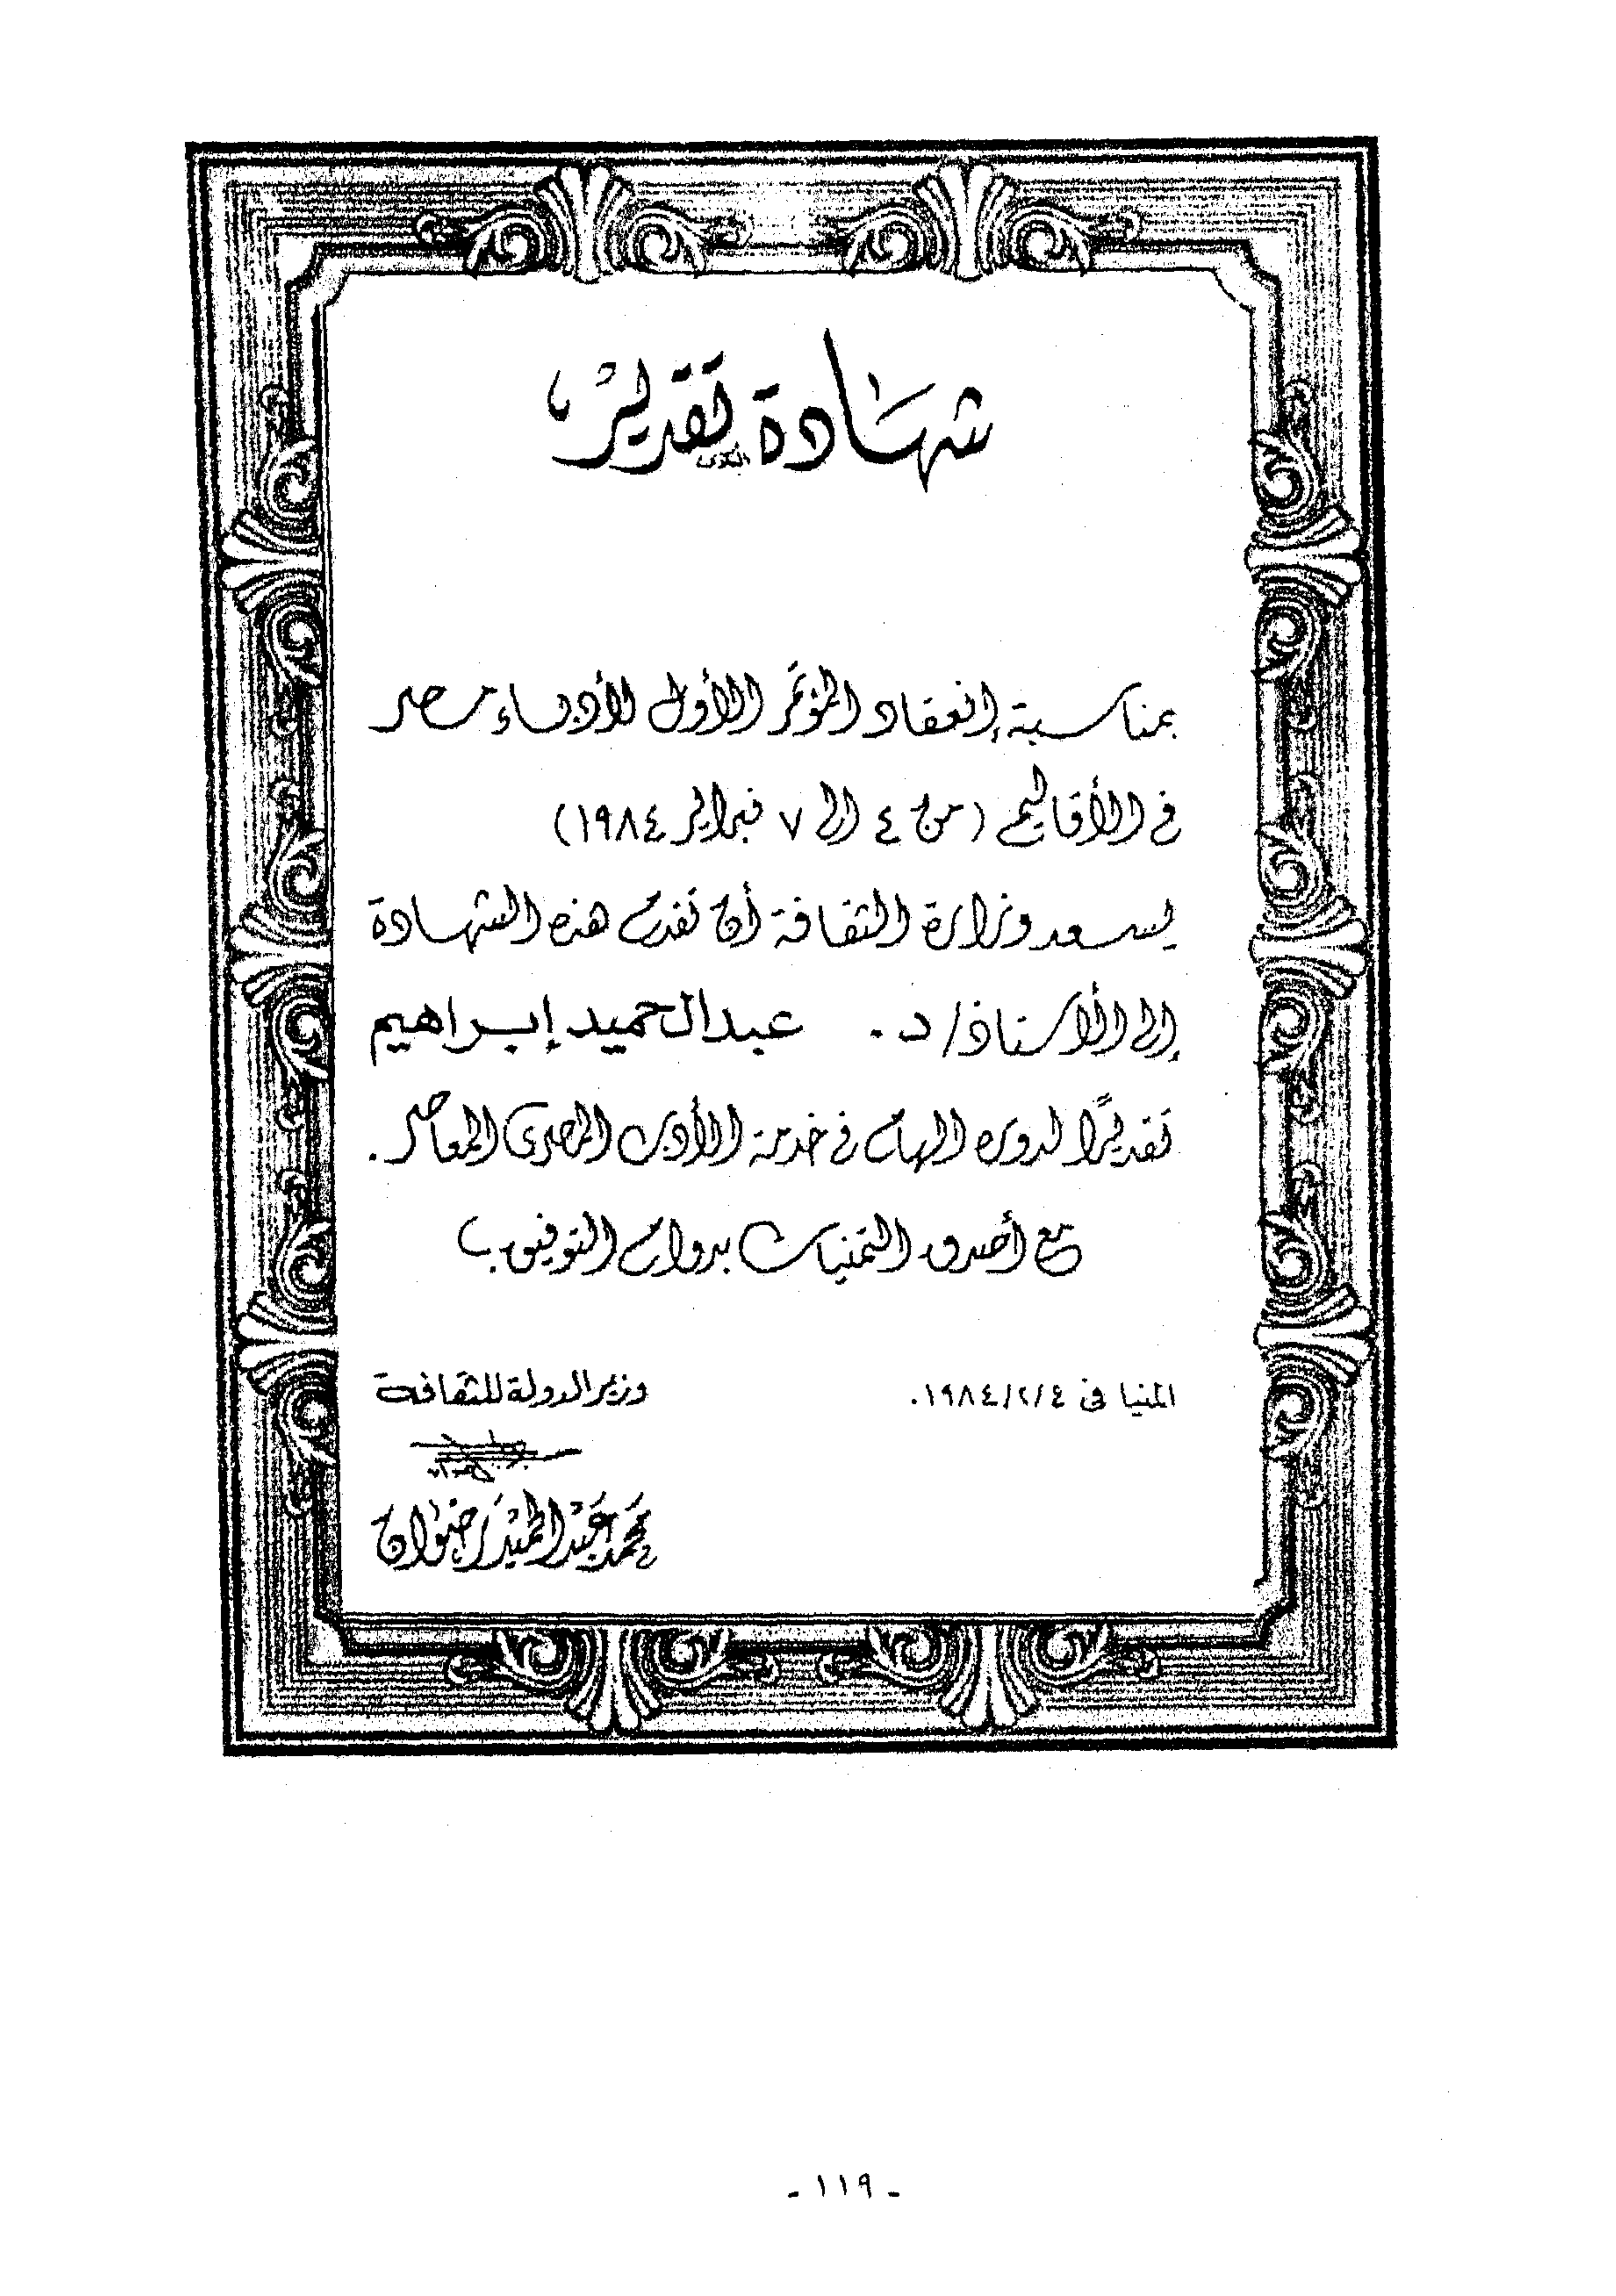 شهادة تقدير
بمناسبة إنعقاد المؤتمر الأول لأدباء مصر
فى الأقاليم (من ٤ إلى ٧ فبراير ١٩٨٤)
يسعد وزارة الثقافة أن تقدم هذه الشهادة
إلى الأستاذ/ د. عبدالحميد إبراهيم
تقديرًا لدوره الهام فى خدمة الأدب المصرى المعاصر.
مع أصدق التمنيات بدوام التوفيق
المنيا فى ١٩٨٤/٢/٤.
وزير الدولة للثقافة
محمد عبد الحميد رضوان
- ١١٩ -